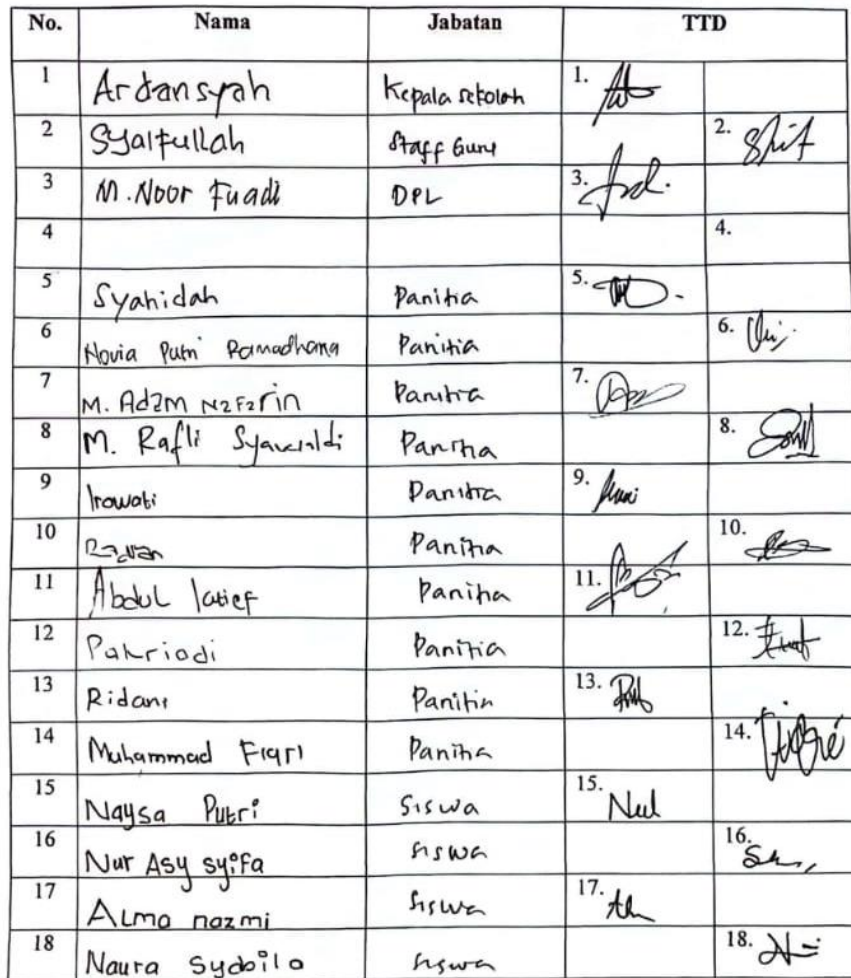 No. Nama Jabatan TTD
1 Ardansyah Kepala sekolah 1.
2 Syaifullah Staff Guru 2.
3 M. Noor Fuadi DPL 3.
4 4.
5 Syahidah Panitia 5.
6 Novia Putri Ramadhana Panitia 6.
7 M. Adam Nazarin Panitia 7.
8 M. Rafli Panitia 8.
9 Irawati Panitia 9.
10 Panitia 10.
11 Abdul latief Panitia 11.
12 Pakriadi Panitia 12.
13 Ridani Panitia 13.
14 Muhammad Fiqri Panitia 14.
15 Naysa Putri Siswa 15.
16 Nur Asy syifa siswa 16.
17 ALma nazmi siswa 17.
18 Naura Syabila siswa 18.